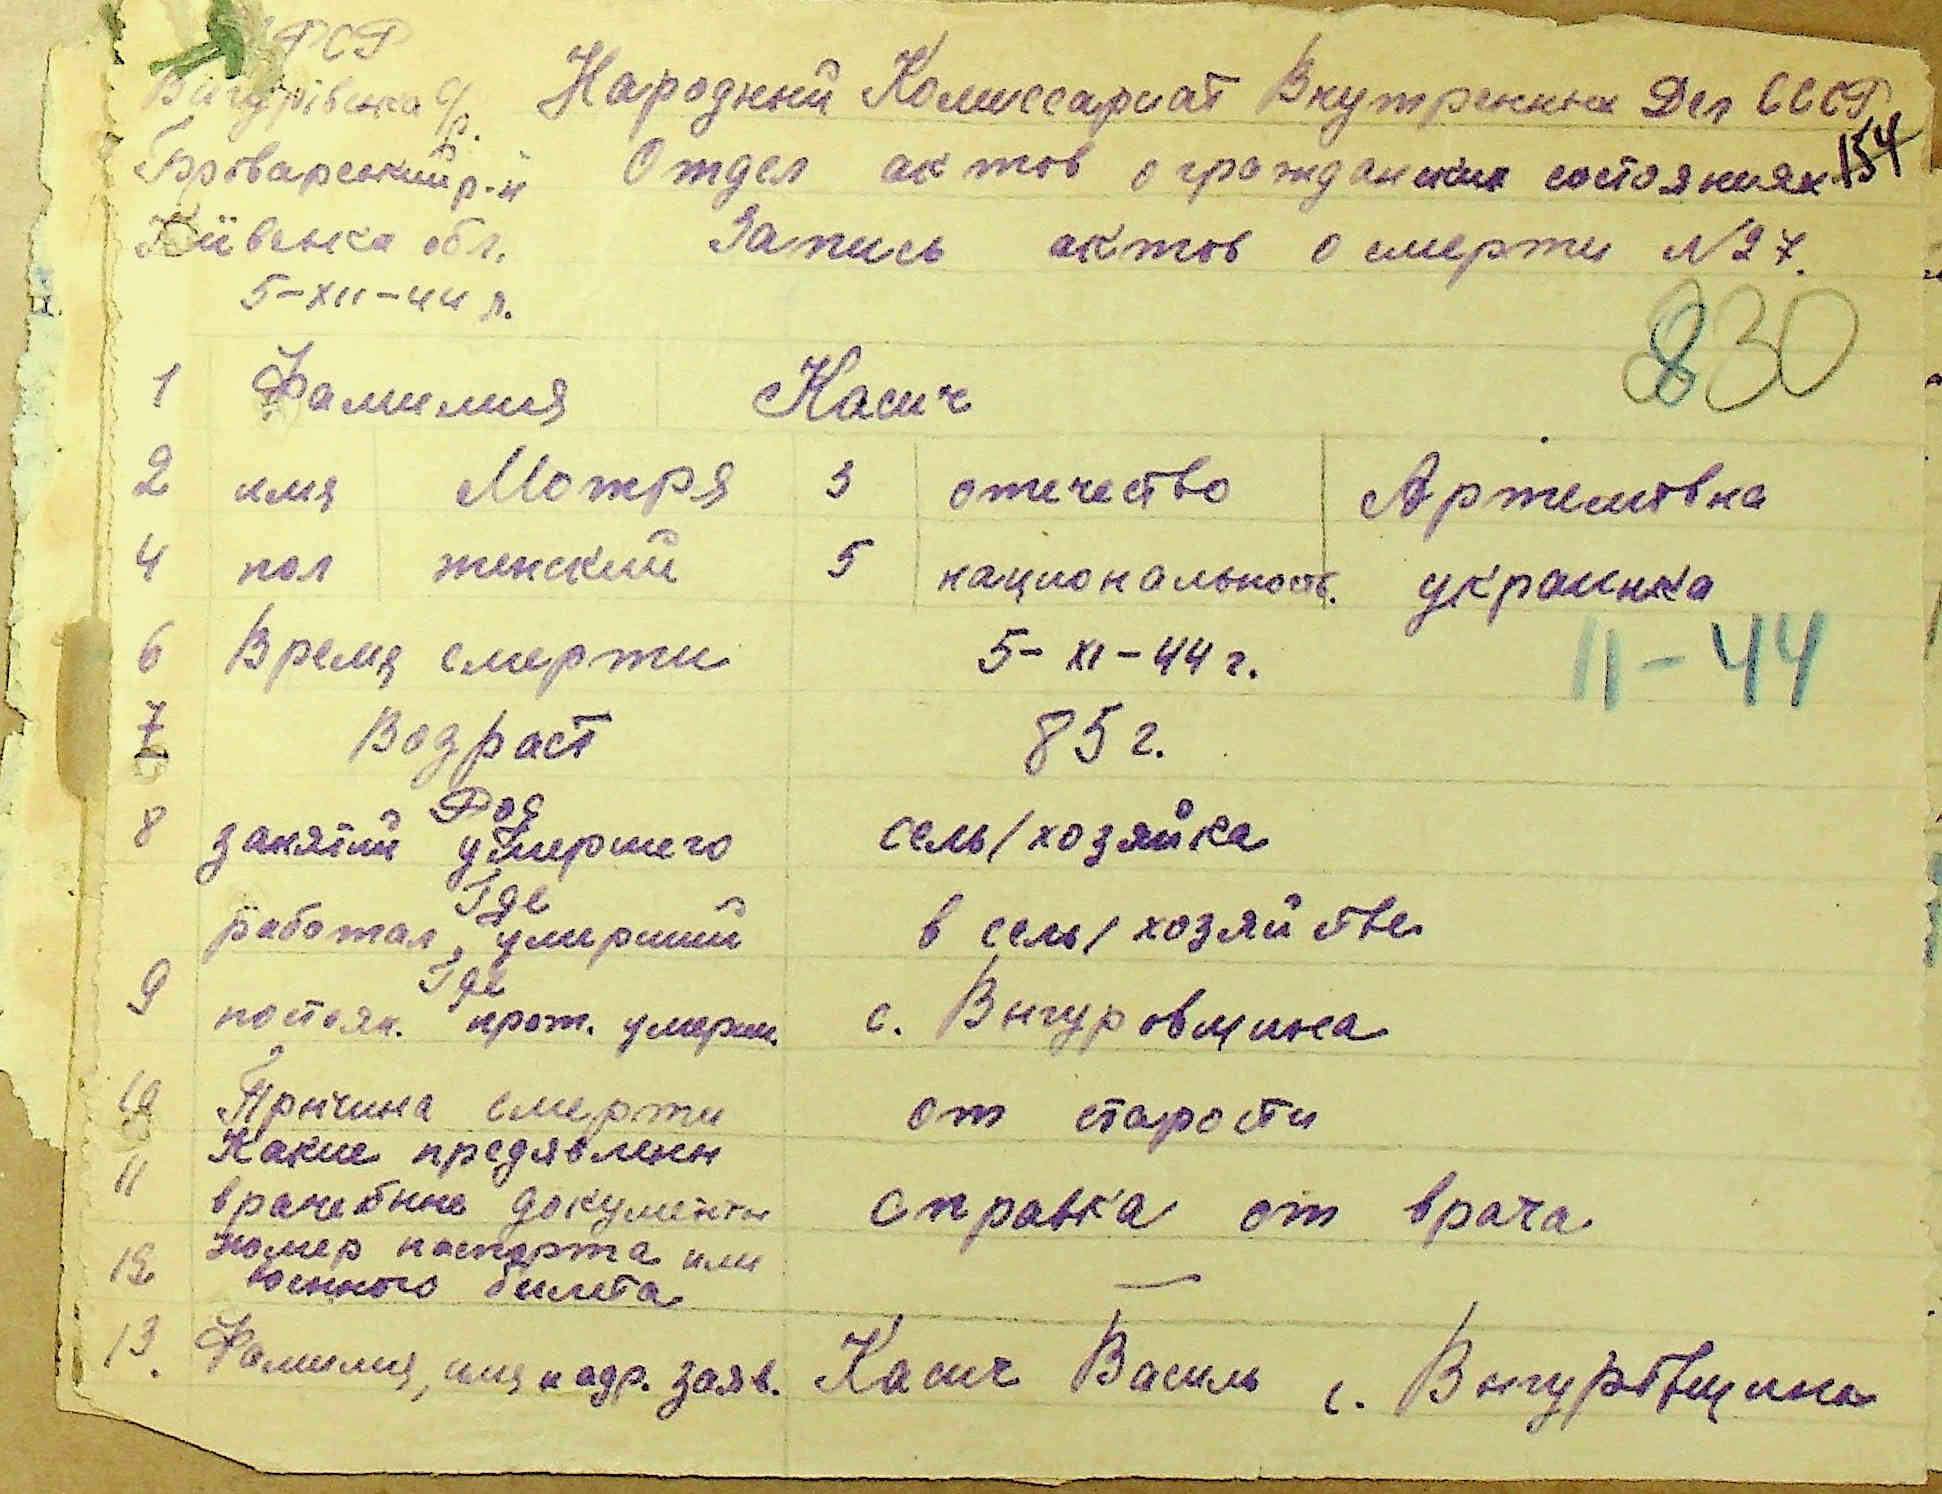 РСР
Вигурівська с/р. Народный Комиссариат Внутренных Дел СССР
Броварський р-н Отдел актов о гражданских состояниях 154
Київська обл. Запись актов о смерти №27.
5-XII-44 р.
830
1 Фамилия Касич
2 имя Мотря 3 отечество Артемовна
4 пол женский 5 национальность. украинка
6 Время смерти 5-XI-44 г. 11-44
7 Возраст 85 г.
8 Род
занятий умершего сель/хозяйка
Где
работал умерший в сель/хозяйстве
9 Где
постоян. прож. умерш. с. Выгуровщина
10 Причина смерти от старости
11 Какие предявлены
врачебные документы справка от врача
12. номер паспорта или
военного билета —
13. Фамилия, имя и адр. заяв. Касич Василь с. Выгуровщина